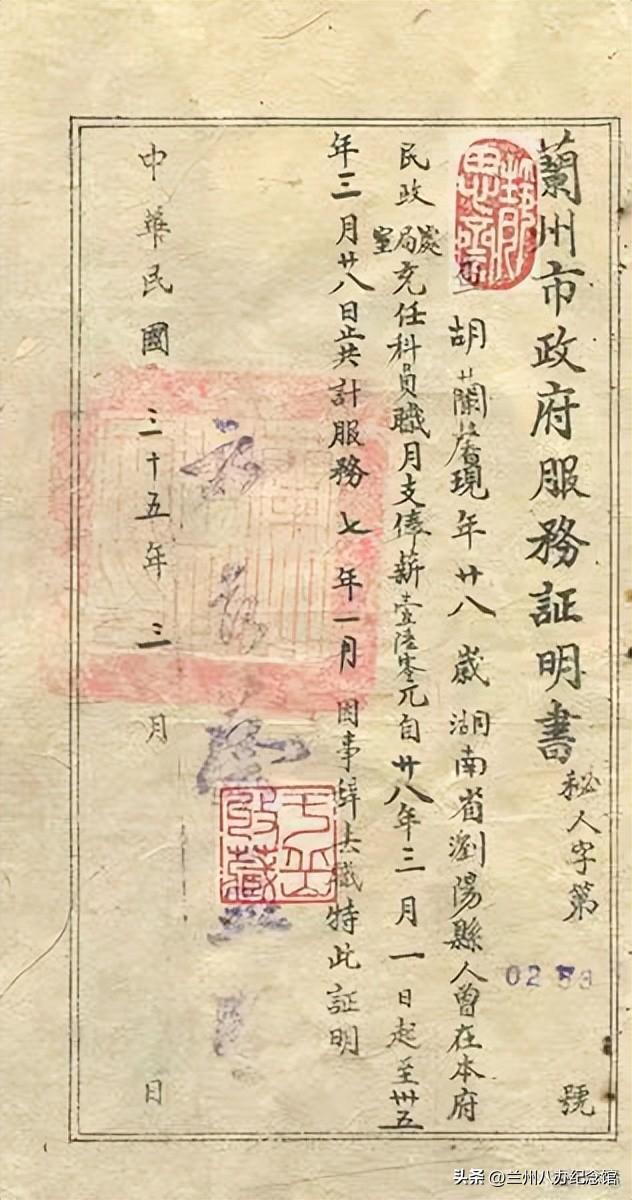 蘭州市政府服務証明書
秘人字第0253號
胡蘭馨現年廿八歲湖南省瀏陽縣人曾在本府
民政處局室充任科員職月支俸薪壹陸零元自廿八年三月一日起至卅五
年三月廿八日止共計服務七年一月因事辞去職特此証明
中華民國三十五年三月日
头条@兰州八办纪念馆